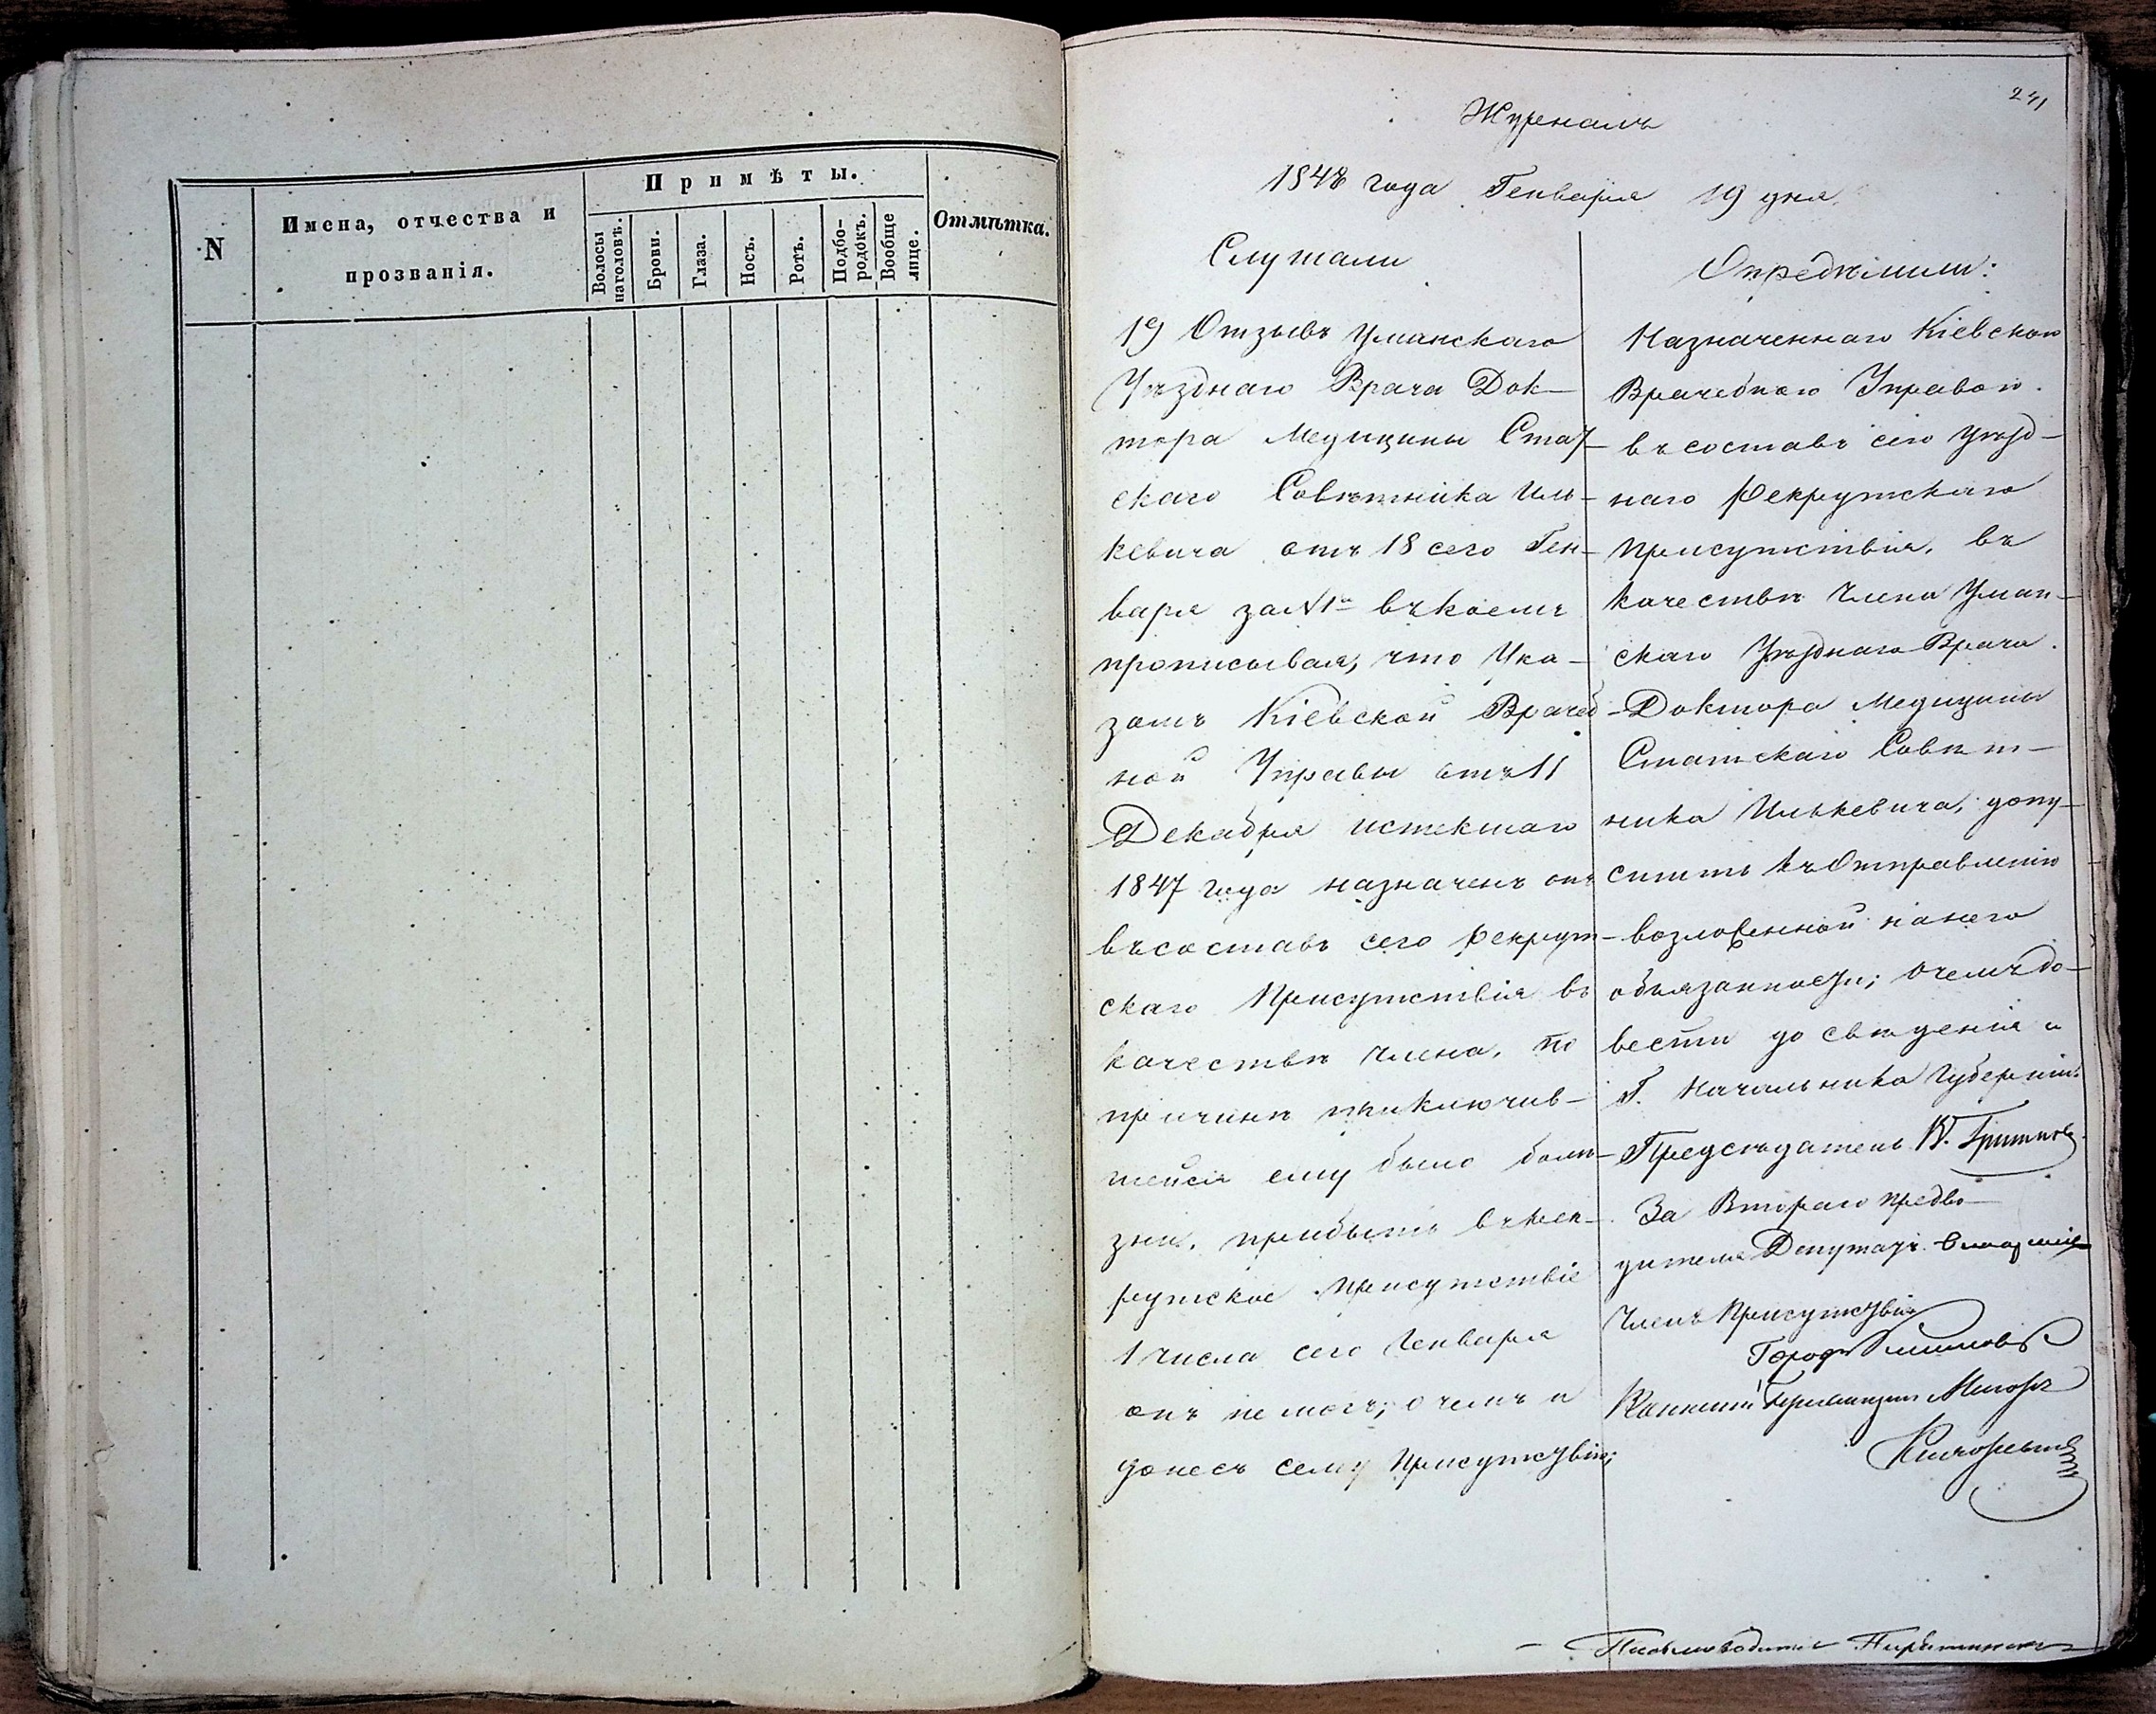 N
Имена, отчества и
прозванія.
Примѣты.
Волосы
наголовѣ.
Брови.
Глаза.
Носъ.
Ротъ.
Подбо-
родокъ.
Вообще
лице.
Отмѣтка.
241
Журналъ
1848 года Генваря 19 дня.
Слушали
1е) Отзывъ Уманскаго
Уѣзднаго Врача Док-
тора Медицины Стат-
скаго Совѣтника Иль-
кевича отъ 18 сего Ген-
варя за № 1м въ коемъ
прописывая, что Ука-
зомъ Кіевской Врачеб
ной Управы отъ 11
Декабря истекшаго
1847 года назначенъ онъ
въ составъ сего Рекрут-
скаго Присутствія въ
качествѣ члена, по
причинѣ приключив-
шейся ему было болѣ-
зни, прибыть въ Рек-
рутское присутствіе
1 числа сего Генваря
онъ не могъ; о чемъ и
донесъ сему Присутствію;
Опредѣлили:
Назначеннаго Кіевскою
Врачебною Управою
въ составъ сего уѣзд-
наго Рекрутскаго
присутствія, въ
качествѣ Члена Уман-
скаго Уѣзднаго Врача
Доктора Медицины
Статскаго Совѣт-
ника Илькевича, допу-
стить къ Отправленію
возложенной на него
обязанности; о чемъ до-
вести до свѣденія и
Г. Начальника Губерніи.
Предсѣдатель К.
За Втораго предво-
дителя Депутатъ
Членъ Присутствія
Город.
Маіоръ
Письмоводитель